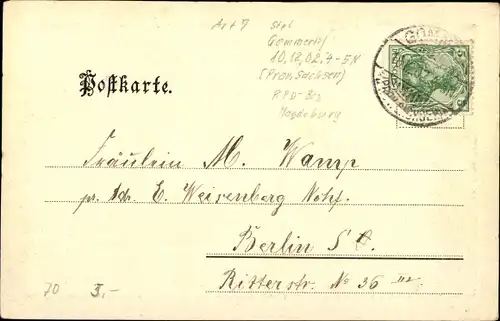 Art 7 Stpl
Gommern/
10.12.02.4-5N
(Prov. Sachsen)
Magdeburg
GOM
Postkarte.
5 5
Fräulein M. Wamp
pr. Adr. E. Weisenberg Nchf.
Berlin S
Ritterstr. No 36 III
70 3,-